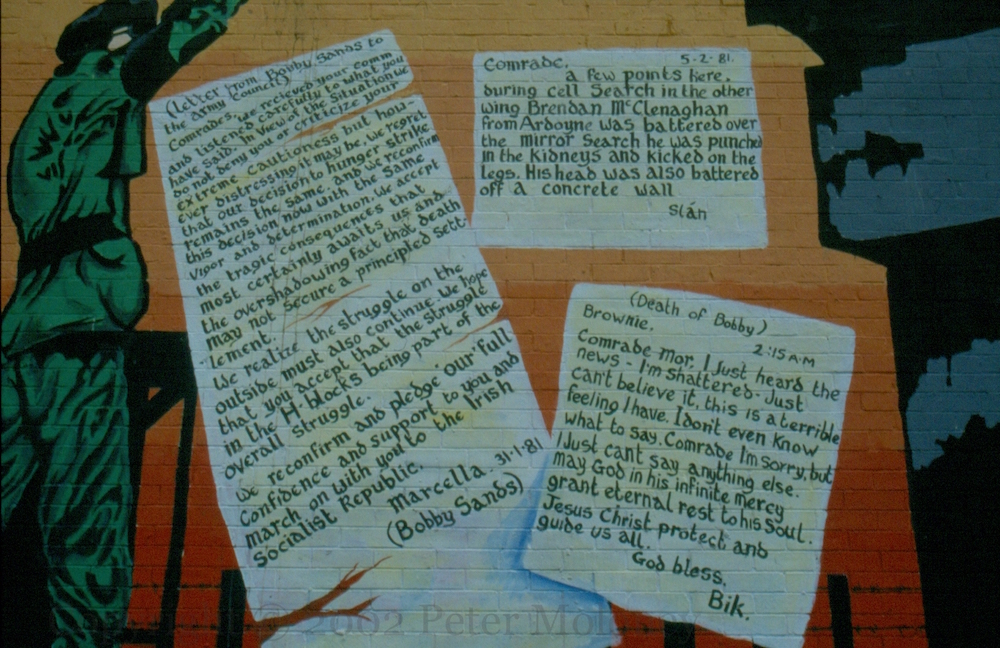 (Letter from Bobby Sands to
the army council)
Comrades, we recieved your comm
and listened carefully to what you
have said. In view of the situation we
do not deny you or criticize your
extreme cautioness but how-
ever distressing it may be, we regret
that our decision to hunger strike
remains the same, and we reconfirm
this decision now with the same
vigor and determination. We accept
the tragic consequences that
most certainly awaits us and
the overshadowing fact that death
may not secure a principled sett-
lement.
We realize the struggle on the
outside must also continue. We hope
that you accept that the struggle
in the H blocks being part of the
overall struggle.
We reconfirm and pledge 'our' full
confidence and support to you and
march on with you to the Irish
Socialist Republic.
Marcella. 31·1·81
(Bobby Sands)
Comrade, 5·2·81.
a few points here.
during cell Search in the other
wing Brendan McClenaghan
from Ardoyne was battered over
the mirror search he was punched
in the kidneys and kicked on the
legs. His head was also battered
off a concrete wall
Slán
(Death of Bobby)
Brownie, 2:15 A·M
Comrade Mor, I Just heard the
news - I'm shattered - Just
can't believe it, this is a terrible
feeling I have. I don't even know
what to say. Comrade I'm sorry, but
I Just can't say anything else.
may God in his infinite mercy
grant eternal rest to his Soul.
Jesus Christ protect and
guide us all.
God bless,
Bik.
© 2002 Peter